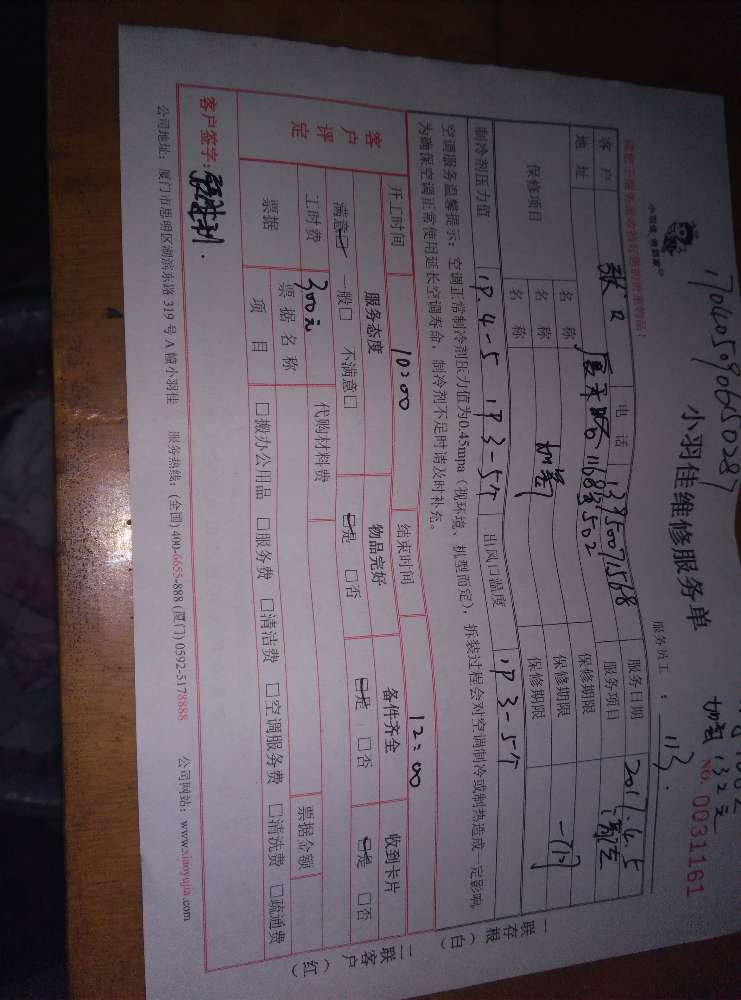 170405090650287
小羽佳维修服务单
加氟132元
NO. 0031161
服务员工：113.
小羽佳·您的家
请您于服务前收捡好您的贵重物品!
客户 张 电话 13950071568 服务日期 2017.4.5
地址 168号502 服务项目
保修项目 名称 保修期限
名称 加氟 保修期限
名称 保修期限
制冷剂压力值 1P 4-5 1P 3-5个 出风口温度 1P 3-5个
空调服务温馨提示：空调正常制冷剂压力值为0.45mpa（视环境、机型而定），拆装过程会对空调制冷或制热造成一定影响，
为确保空调正常使用延长空调寿命，制冷剂不足时请及时补充。
开工时间 10:00 结束时间 12:00
客户评定 服务态度 物品完好 备件齐全 收到卡片
满意☑ 一般□ 不满意□ ☑是 □否 ☑是 □否 ☑是 □否
工时费 300元 代购材料费
票据 票据名称 票据金额
项目 □搬办公用品 □服务费 □清洁费 □空调服务费 □清洗费 □疏通费
客户签字：
一联存根（白）
二联客户（红）
公司地址：厦门市思明区湖滨东路 319 号 A 幢小羽佳 服务热线：(全国) 400-6655-888 (厦门) 0592-5178888 公司网站：www.xiaoyujia.com